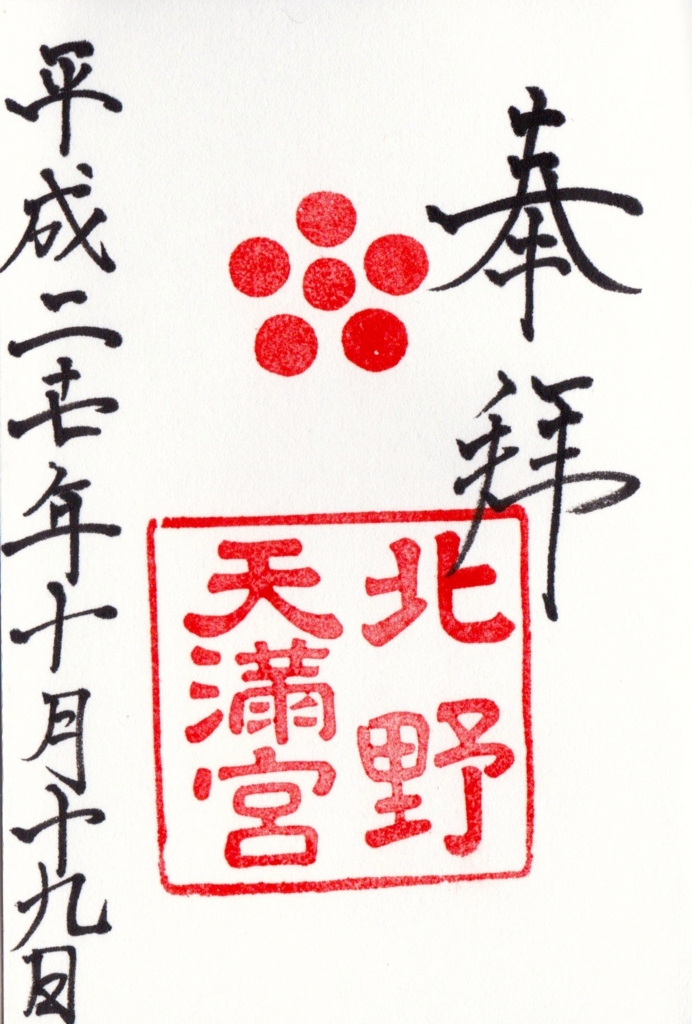 奉拝
北野
天満宮
平成二十七年十月十九日